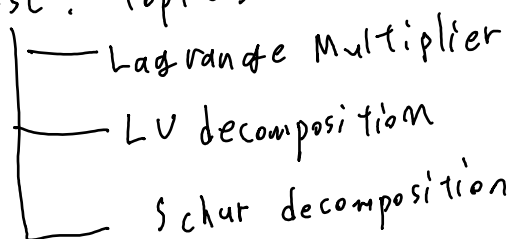 Lagrange Multiplier
LU decomposition
Schur decomposition